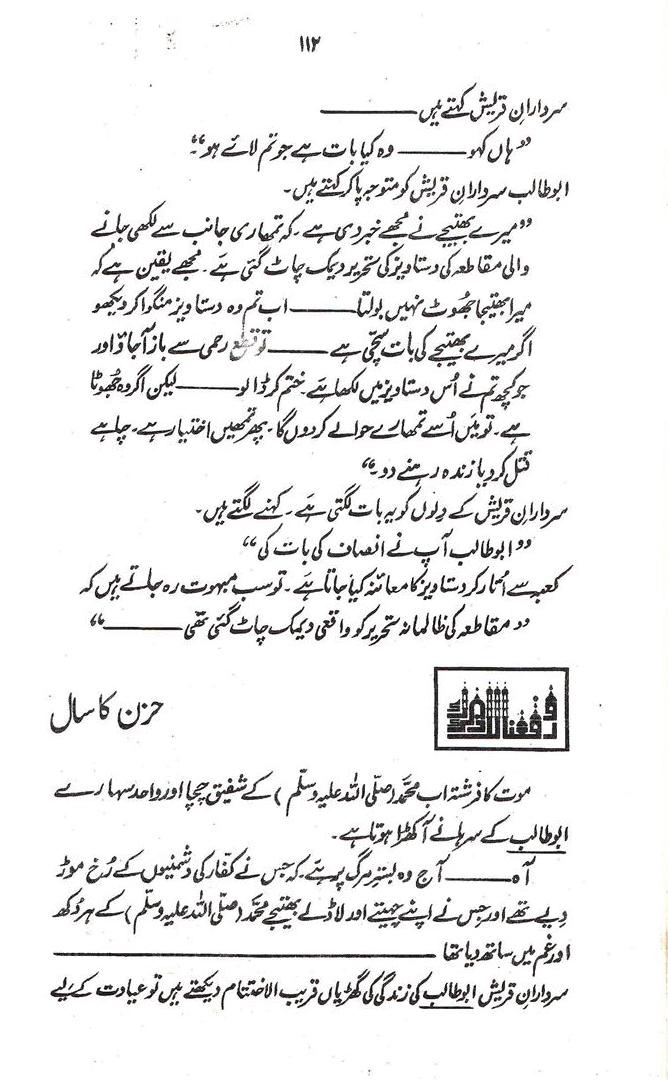 ۱۱۲
سردارانِ قریش کہتے ہیں ———
”ہاں کہو ——— وہ کیا بات ہے جو تم لائے ہو“۔
ابوطالب سردارانِ قریش کو متوجہ پا کر کہتے ہیں۔
”میرے بھتیجے نے مجھے خبر دی ہے۔ کہ تمھاری جانب سے لکھی جانے
والی مقاطعہ کی دستاویز کی تحریر دیمک چاٹ گئی ہے۔ مجھے یقین ہے کہ
میرا بھتیجا جھوٹ نہیں بولتا ——— اب تم وہ دستاویز منگوا کر دیکھو
اگر میرے بھتیجے کی بات سچّی ہے ——— تو قطع رحمی سے باز آ جاؤ اور
جو کچھ تم نے اُس دستاویز میں لکھا ہے۔ ختم کر ڈالو ——— لیکن اگر وہ جھوٹا
ہے۔ تو میں اُسے تمھارے حوالے کر دوں گا۔ پھر تمھیں اختیار ہے۔ چاہے
قتل کر دیا زندہ رہنے دو۔“
سردارانِ قریش کے دِلوں کو یہ بات لگتی ہے۔ کہنے لگتے ہیں۔
”ابوطالب آپ نے انصاف کی بات کی“
کعبہ سے اُتار کر دستاویز کا معائنہ کیا جاتا ہے۔ تو سب مبہوت رہ جاتے ہیں کہ
”مقاطعہ کی ظالمانہ تحریر کو واقعی دیمک چاٹ گئی تھی ———“
ورفعنا لک ذکرک
حزن کا سال
موت کا فرشتہ اب محمّد (صلّی اللہ علیہ وسلّم) کے شفیق چچا اور واحد سہارے
ابوطالب کے سرہانے آ کھڑا ہوتا ہے۔
آہ ——— آج وہ بسترِ مرگ پر ہے۔ کہ جس نے کفّار کی دشمنیوں کے رُخ موڑ
دِیے تھے اور جس نے اپنے چہیتے اور لاڈلے بھتیجے محمّد (صلّی اللہ علیہ وسلّم) کے ہر دُکھ
اور غم میں ساتھ دیا تھا ———
سردارانِ قریش ابوطالب کی زندگی کی گھڑیاں قریب الاختتام دیکھتے ہیں تو عیادت کے لیے